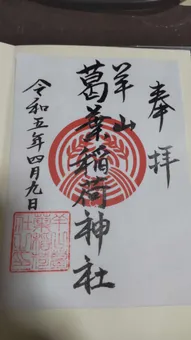 奉拝
羊山
葛葉稲荷神社
令和五年四月九日